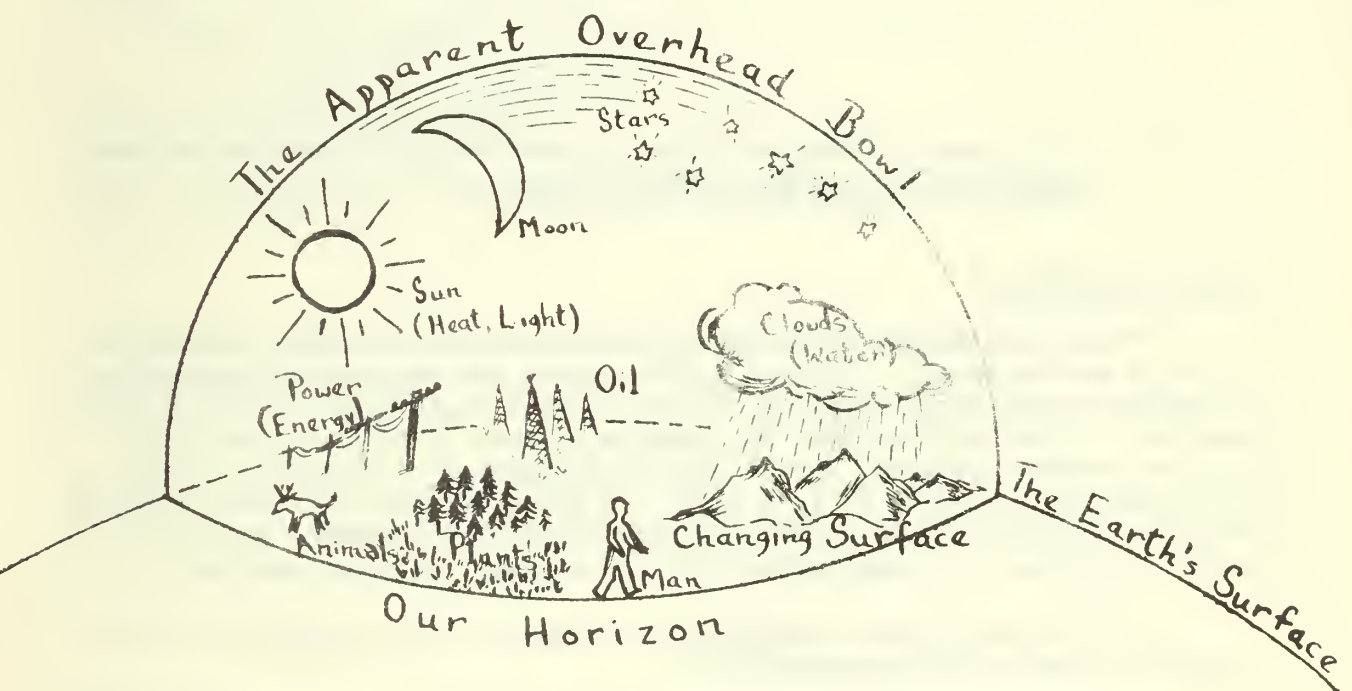 The Apparent Overhead Bowl
Stars
Moon
Sun
(Heat, Light)
Clouds
(Water)
Power
(Energy)
Oil
Animals
Plants
Man
Changing Surface
Our Horizon
The Earth's Surface